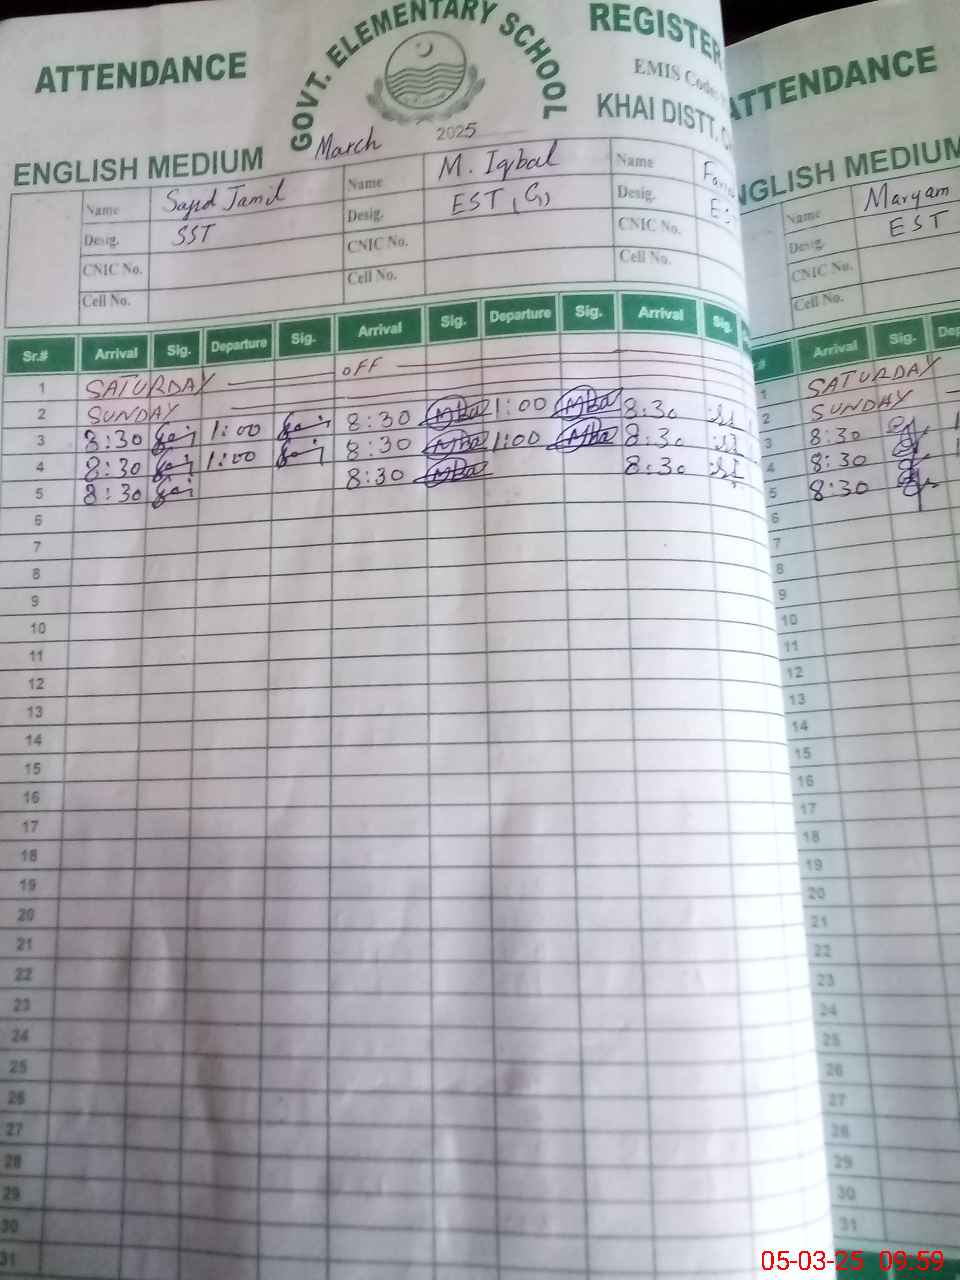 ATTENDANCE
GOVT. ELEMENTARY SCHOOL
REGISTER
EMIS Code:
KHAI DISTT.
ENGLISH MEDIUM
March 2025
Name Sajid Jamil Name M. Iqbal Name
Desig. SST Desig. EST (G) Desig.
CNIC No. CNIC No. CNIC No.
Cell No. Cell No. Cell No.
Sr.# Arrival Sig. Departure Sig. Arrival Sig. Departure Sig. Arrival Sig.
1 SATURDAY OFF
2 SUNDAY
3 8:30 1:00 8:30 1:00 8:30
4 8:30 1:00 8:30 1:00 8:30
5 8:30 8:30 8:30
6
7
8
9
10
11
12
13
14
15
16
17
18
19
20
21
22
23
24
25
26
27
28
29
30
31
ATTENDANCE
ENGLISH MEDIUM
Name Maryam
Desig. EST
CNIC No.
Cell No.
# Arrival Sig.
1 SATURDAY
2 SUNDAY
3 8:30
4 8:30
5 8:30
6
7
8
9
10
11
12
13
14
15
16
17
18
19
20
21
22
23
24
25
26
27
28
29
30
31
05-03-25 09:59